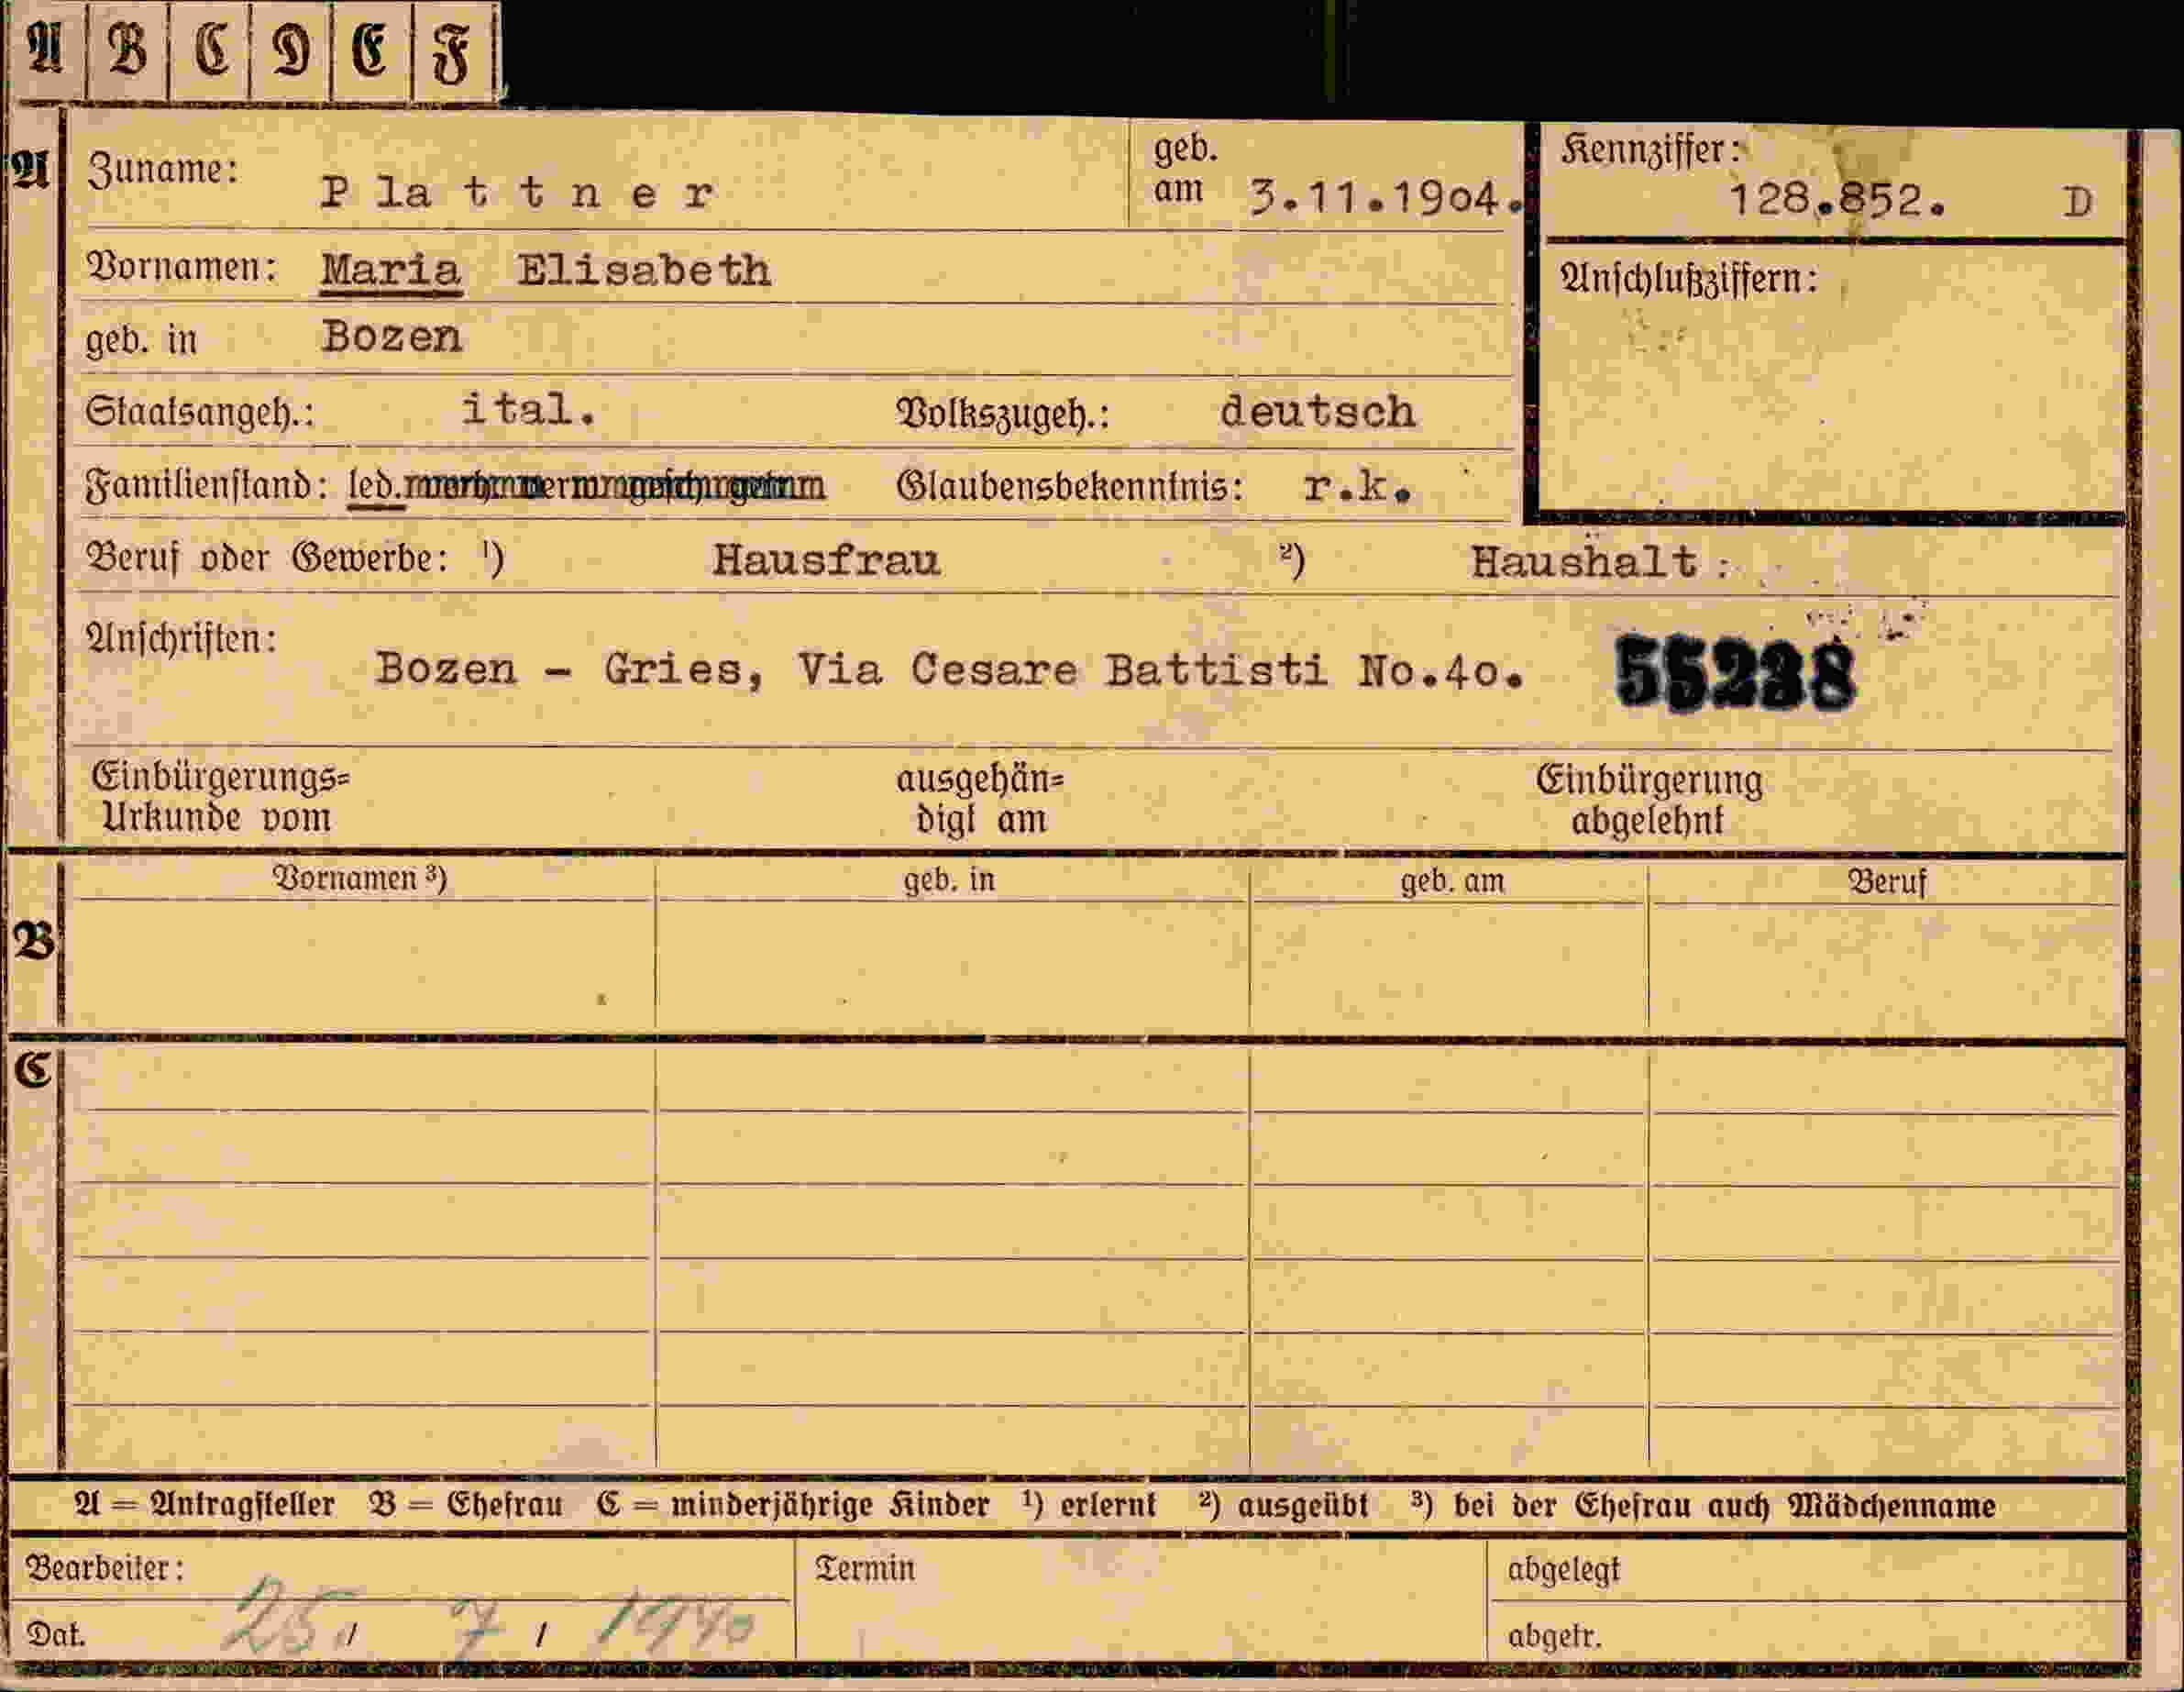 A B C D E F
A Zuname: Plattner geb. am 3.11.1904. Kennziffer: 128.852. D
Vornamen: Maria Elisabeth Anschlußziffern:
geb. in Bozen
Staatsangeh.: ital. Volkszugeh.: deutsch
Familienstand: led. Glaubensbekenntnis: r.k.
Beruf oder Gewerbe: ¹) Hausfrau ²) Haushalt
Anschriften: Bozen - Gries, Via Cesare Battisti No.40. 55238
Einbürgerungs= ausgehän= Einbürgerung
Urkunde vom digt am abgelehnt
Vornamen ³) geb. in geb. am Beruf
B
C
A = Antragsteller B = Ehefrau C = minderjährige Kinder ¹) erlernt ²) ausgeübt ³) bei der Ehefrau auch Mädchenname
Bearbeiter: Termin abgelegt
Dat. 25/ 7/ 1940 abgetr.